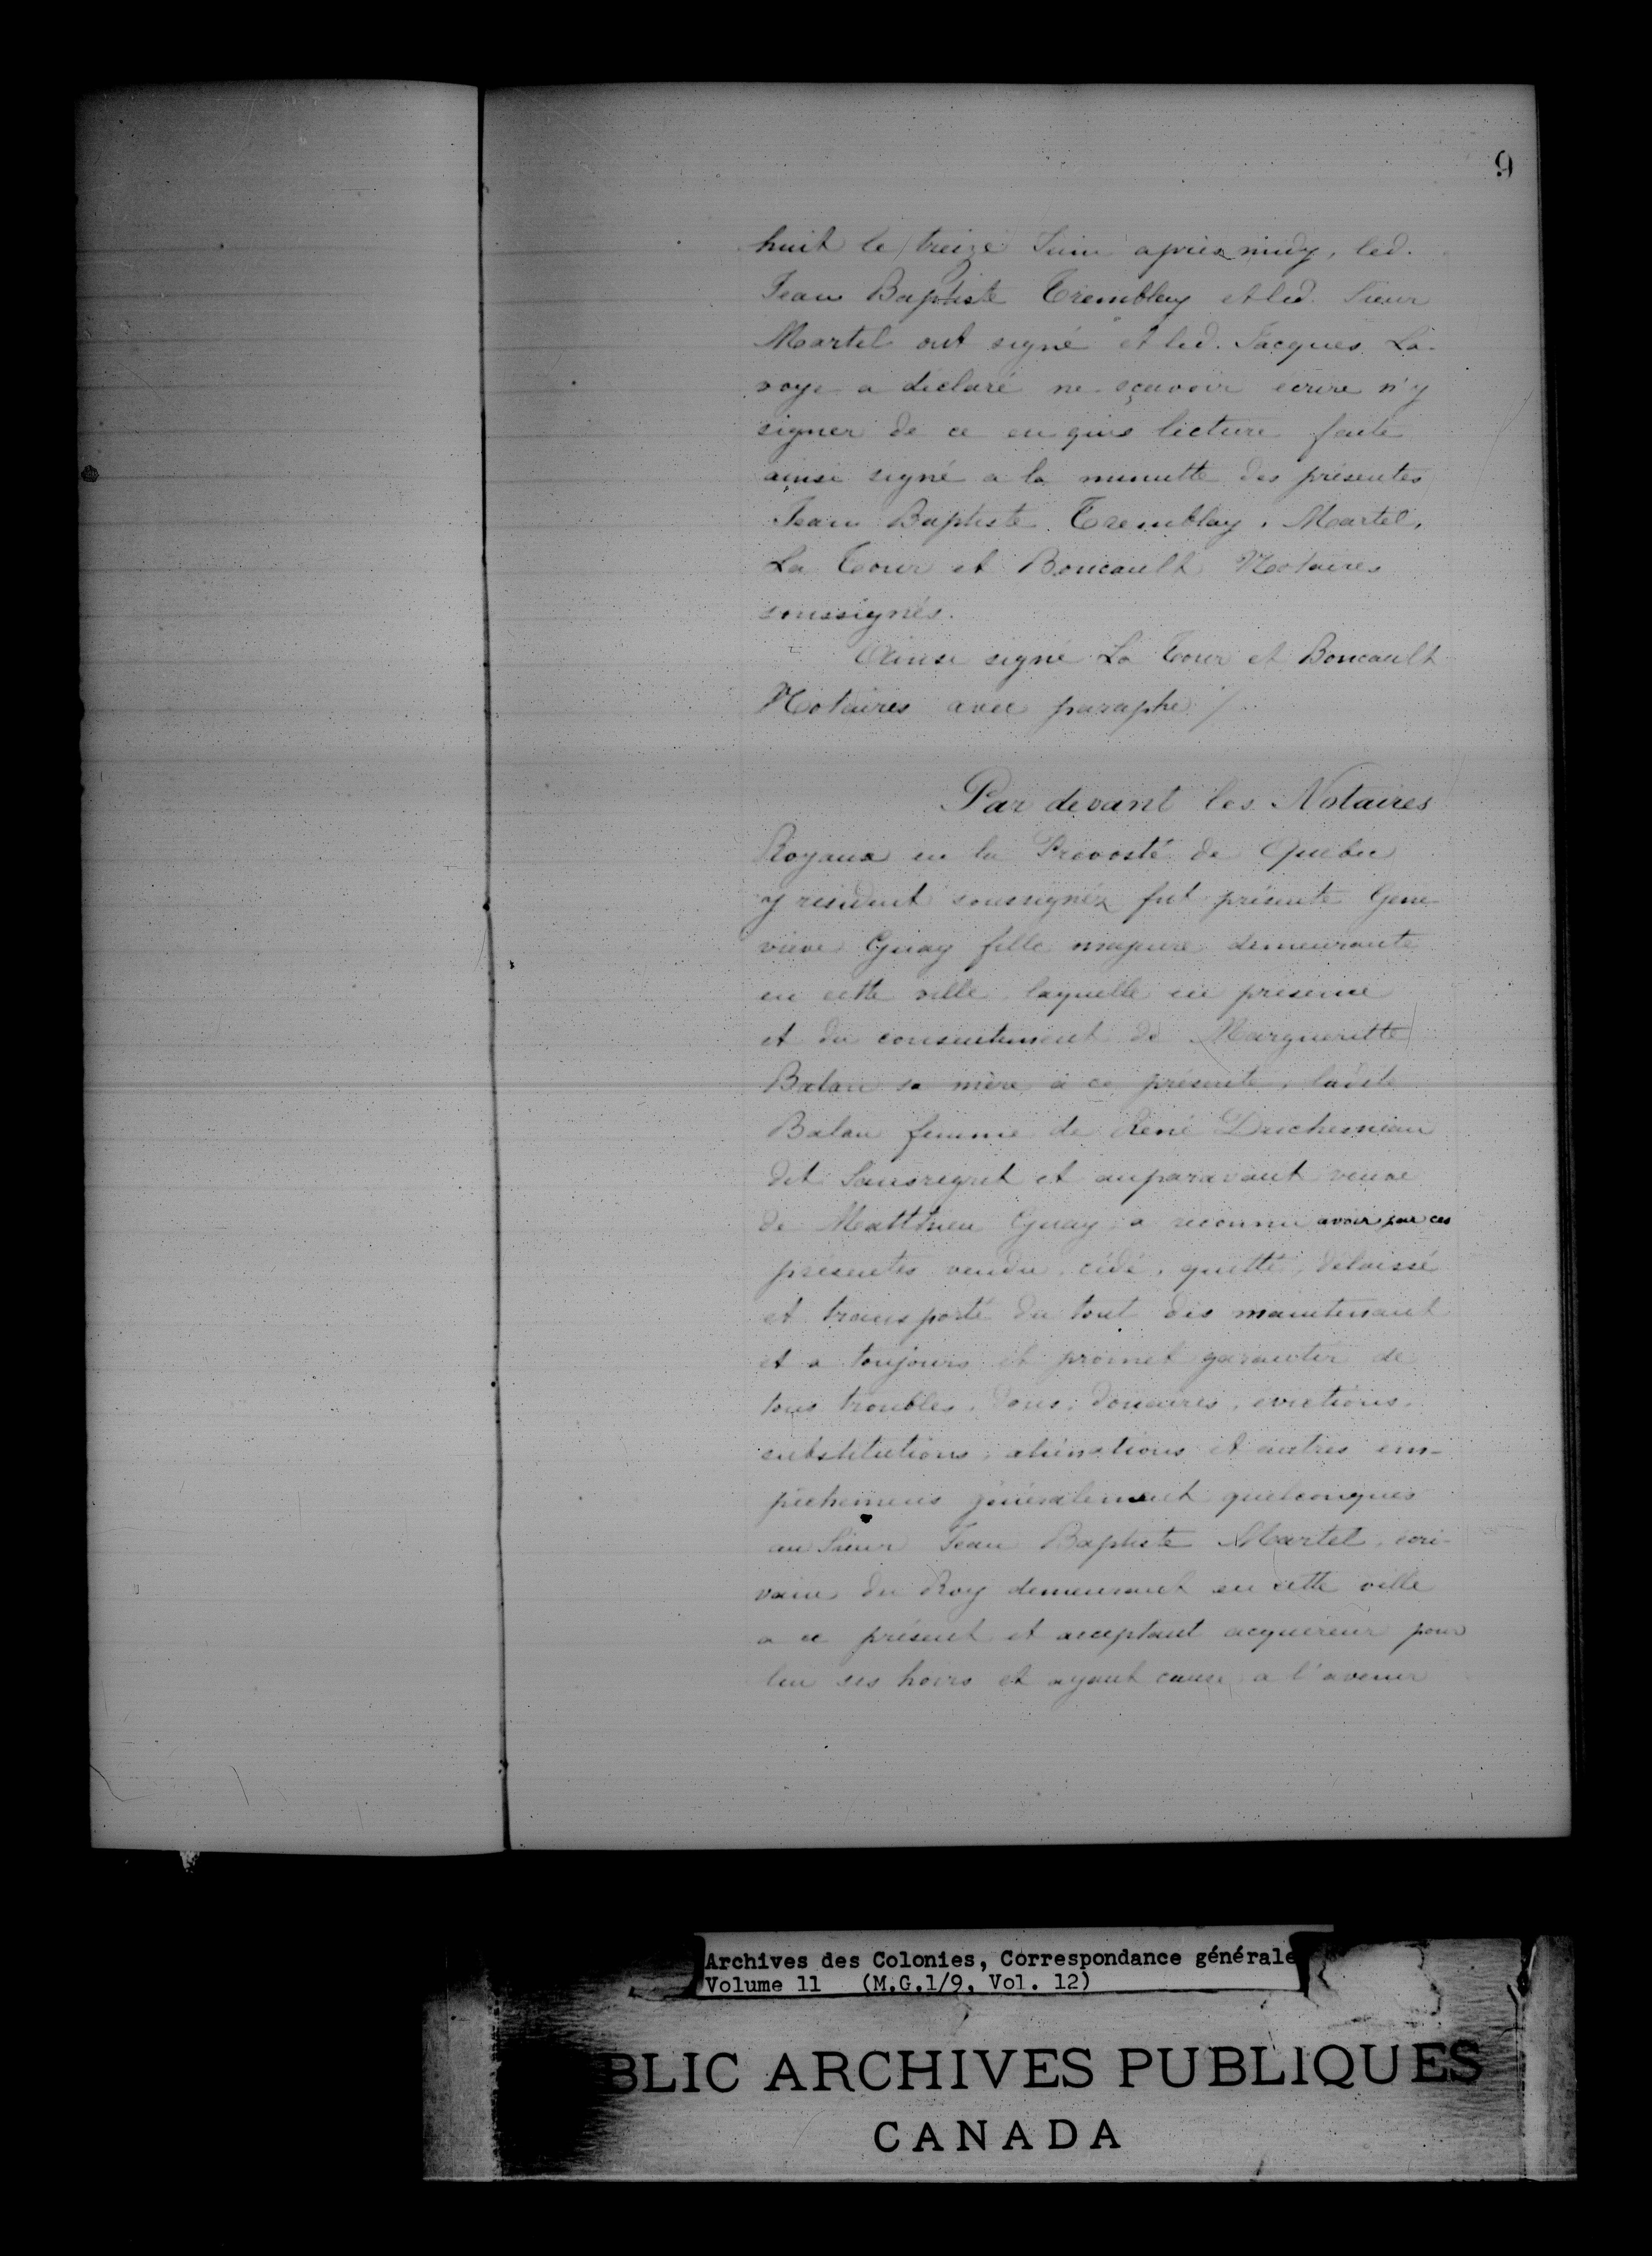 9
huit le treize Juin après midy, led.
Jean Baptiste Tremblay et led. Sieur
Martel ont signé et led. Jacques La-
voye a déclaré ne sçavoir écrire n'y
signer de ce enquis lecture faite
ainsi signé a la minutte des présentes
Jean Baptiste Tremblay, Martel,
La Tour et Boucault Notaires
soussignés.
Ainsi signé La Tour et Boucault
Notaires avec paraphe /.
Par devant les Notaires
Royaux en la Prevosté de Quebec
y residant soussignéz fut présente Gene-
vieve Guay fille majure demeurante
en cette ville laquelle en présence
et du consentement de Margueritte
Batan sa mère à ce présente, ladite
Batan femme de René Duchesneau
dit Sansregret et auparavant veuve
de Matthieu Guay a reconnu avoir par ces
présentes vendu, cédé, quitté, délaissé
et transporté du tout dès maintenant
et a toujours et promet garantir de
tous troubles, dons, donaires, evictions,
substitutions, aliénations et autres em-
pêchemens généralement quelconques
au Sieur Jean Baptiste Martel, écri-
vain du Roy demeurant en cette ville
a ce présent et acceptant acquereur pour
lui ses hoirs et ayant cause a l'avenir
Archives des Colonies, Correspondance générale
Volume 11 (M.G.1/9, Vol. 12)
BLIC ARCHIVES PUBLIQUES
CANADA